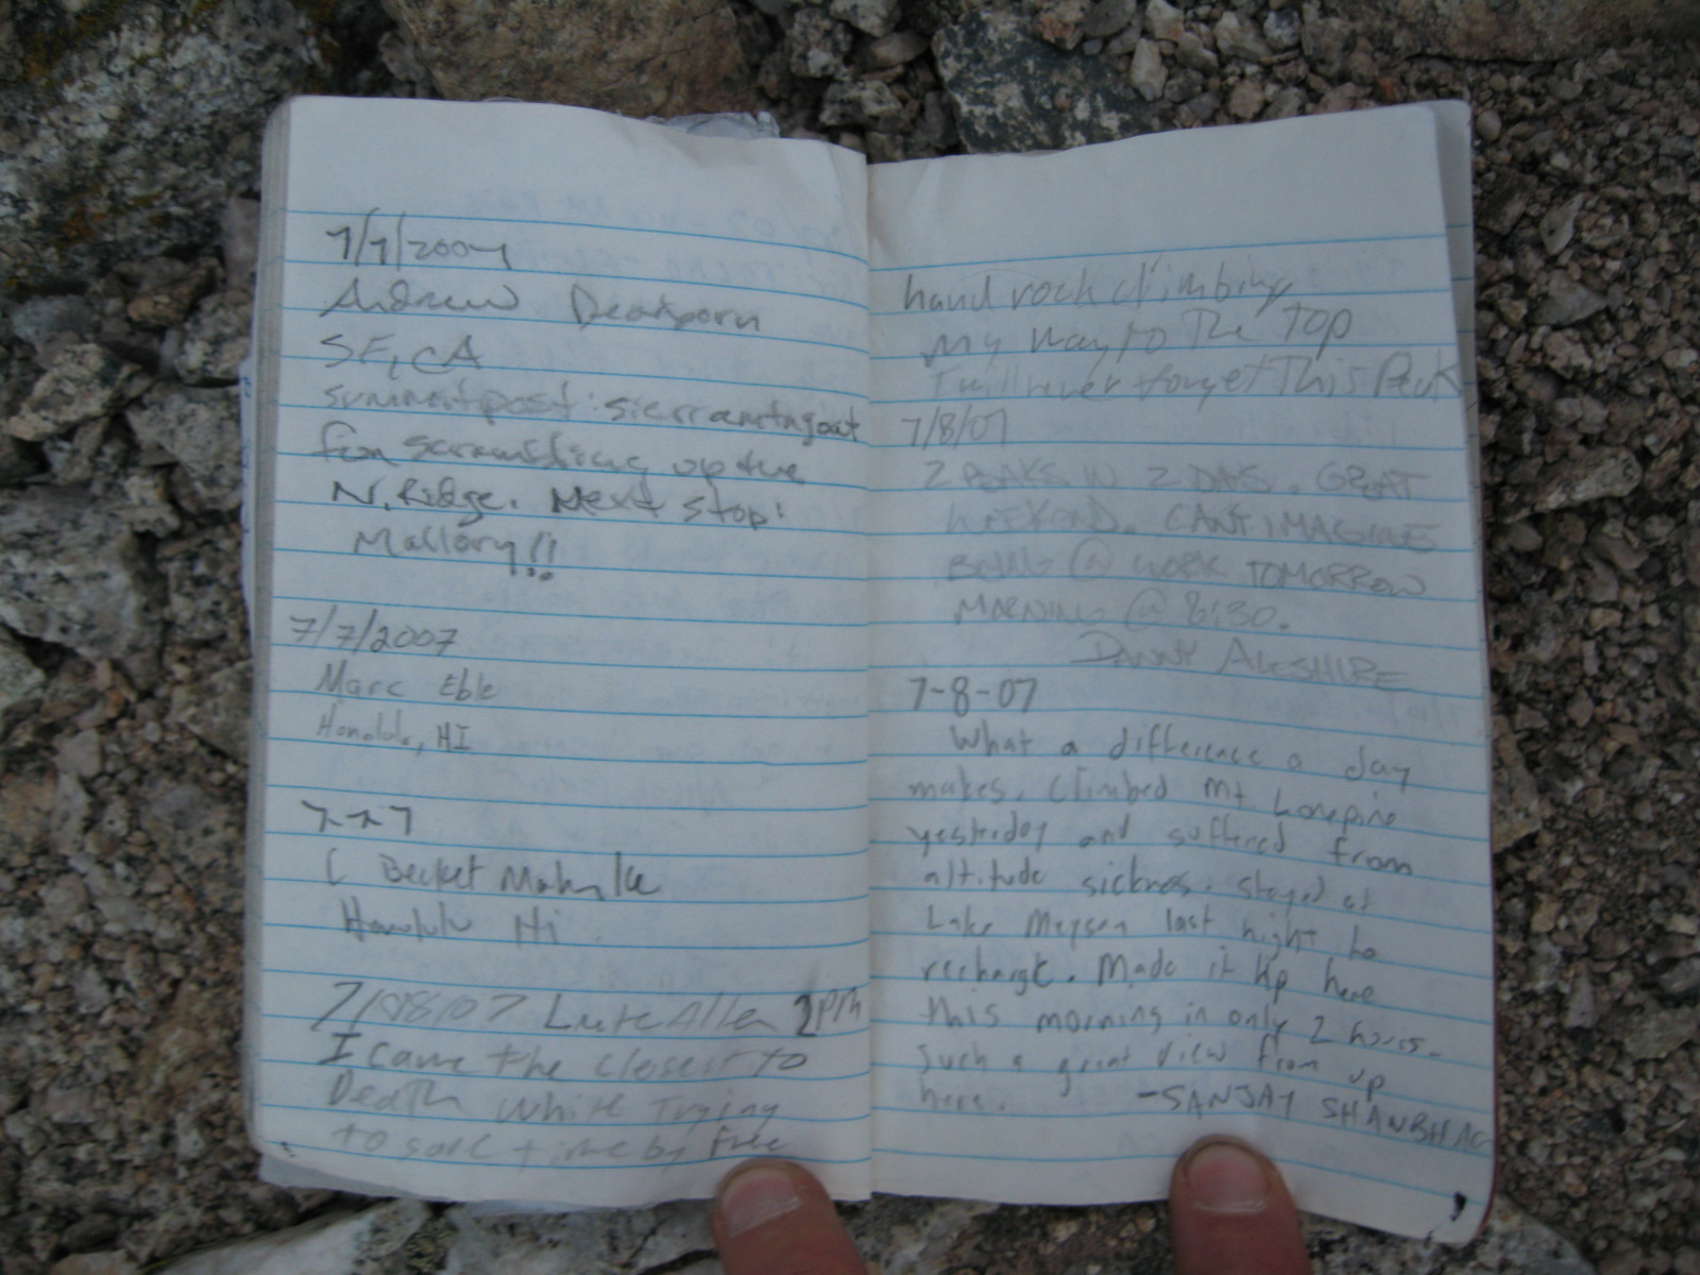 7/7/2007
Andrew Dearborn
SF, CA
summitpost: sierramtngoat
fun scrambling up the
N. Ridge. Next stop:
Mallory!!
7/7/2007
Marc Eble
Honolulu, HI
7-7-7
C Becket
Honolulu Hi
7/08/07 Luke Allen 2pm
I came the closest to
Death while Trying
to save time by free
hand rock climbing
my way to The Top
I will never forget This Peak
7/8/07
2 PEAKS IN 2 DAYS. GREAT
WEEKEND. CANT IMAGINE
BEING @ WORK TOMORROW
MORNING @ 8:30.
DANNY ALESHIRE
7-8-07
What a difference a day
makes. Climbed Mt Lonepine
yesterday and suffered from
altitude sickness. Stayed at
Lake Meysan last night to
recharge. Made it up here
this morning in only 2 hours.
Such a great view from up
here. -SANJAY SHANBHAG